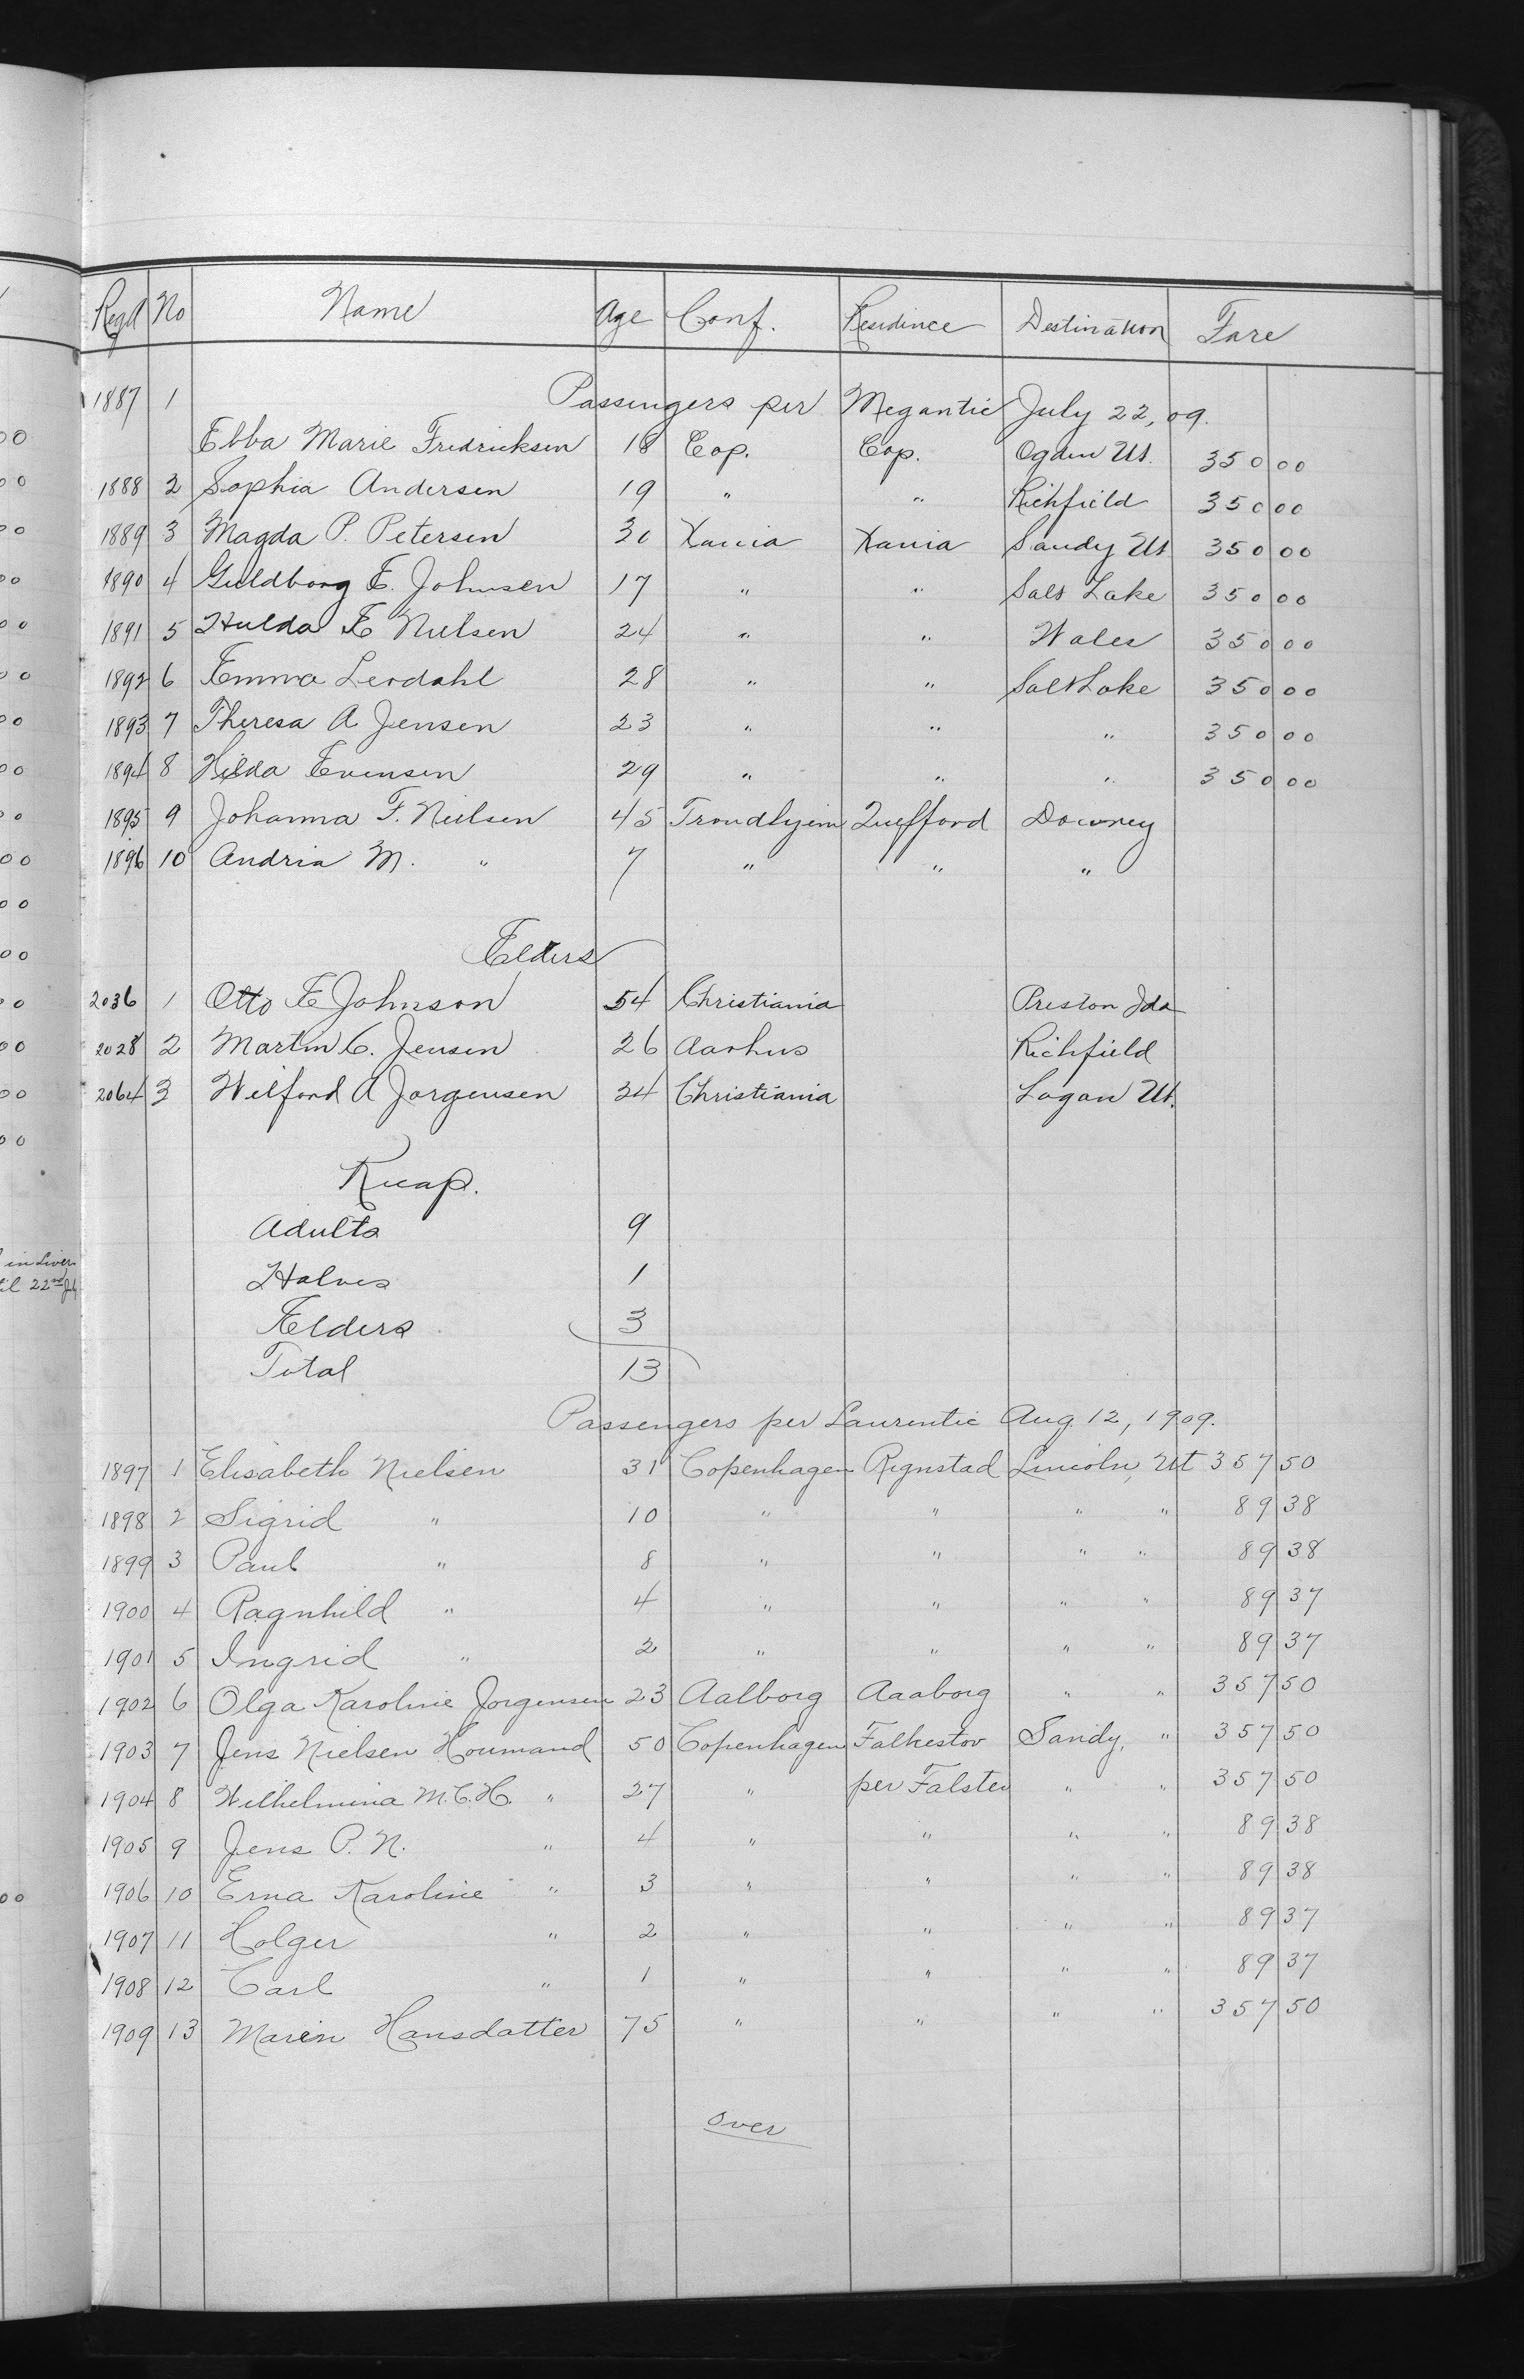 Regd No Name Age Conf. Residence Destination Fare
Passengers per Megantic July 22, 09.
1887 1 Ebba Marie Fredricksen 18 Cop. Cop. Ogden Ut. 350 00
1888 2 Sophia Andersen 19 " " Richfield 350 00
1889 3 Magda P. Petersen 30 Xania Xania Sandy Ut 350 00
1890 4 Guldborg E. Johnsen 17 " " Salt Lake 350 00
1891 5 Hulda E Nielsen 24 " " Wales 350 00
1892 6 Emma Lerdahl 28 " " Salt Lake 350 00
1893 7 Theresa A Jensen 23 " " " 350 00
1894 8 Hilda Evensen 29 " " " 350 00
1895 9 Johanna F. Nielsen 45 Trondhjem Downey
1896 10 Andria M. " 7 " " "
Elders
2036 1 Otto E Johnson 54 Christiania Preston Ida
2028 2 Martin C. Jensen 26 Aarhus Richfield
2064 3 Wilford A Jorgensen 34 Christiania Logan Ut.
Recap.
Adults 9
in Liver
Halves 1
til 22nd July
Elders 3
Total 13
Passengers per Laurentic Aug. 12, 1909.
1897 1 Elisabeth Nielsen 31 Copenhagen Rignstad Lincoln, Ut 357 50
1898 2 Sigrid " 10 " " " " 89 38
1899 3 Paul " 8 " " " " 89 38
1900 4 Ragnhild " 4 " " " " 89 37
1901 5 Ingrid " 2 " " " " 89 37
1902 6 Olga Karoline Jorgensen 23 Aalborg Aaaborg " " 357 50
1903 7 Jens Nielsen Houmand 50 Copenhagen Falkestov Sandy, " 357 50
1904 8 Wilhelmina M.C.H. " 27 " per Falster " " 357 50
1905 9 Jens P. N. " 4 " " " " 89 38
1906 10 Erna Karoline " 3 " " " " 89 38
1907 11 Holger " 2 " " " " 89 37
1908 12 Carl " 1 " " " " 89 37
1909 13 Maren Hansdatter 75 " " " " 357 50
over